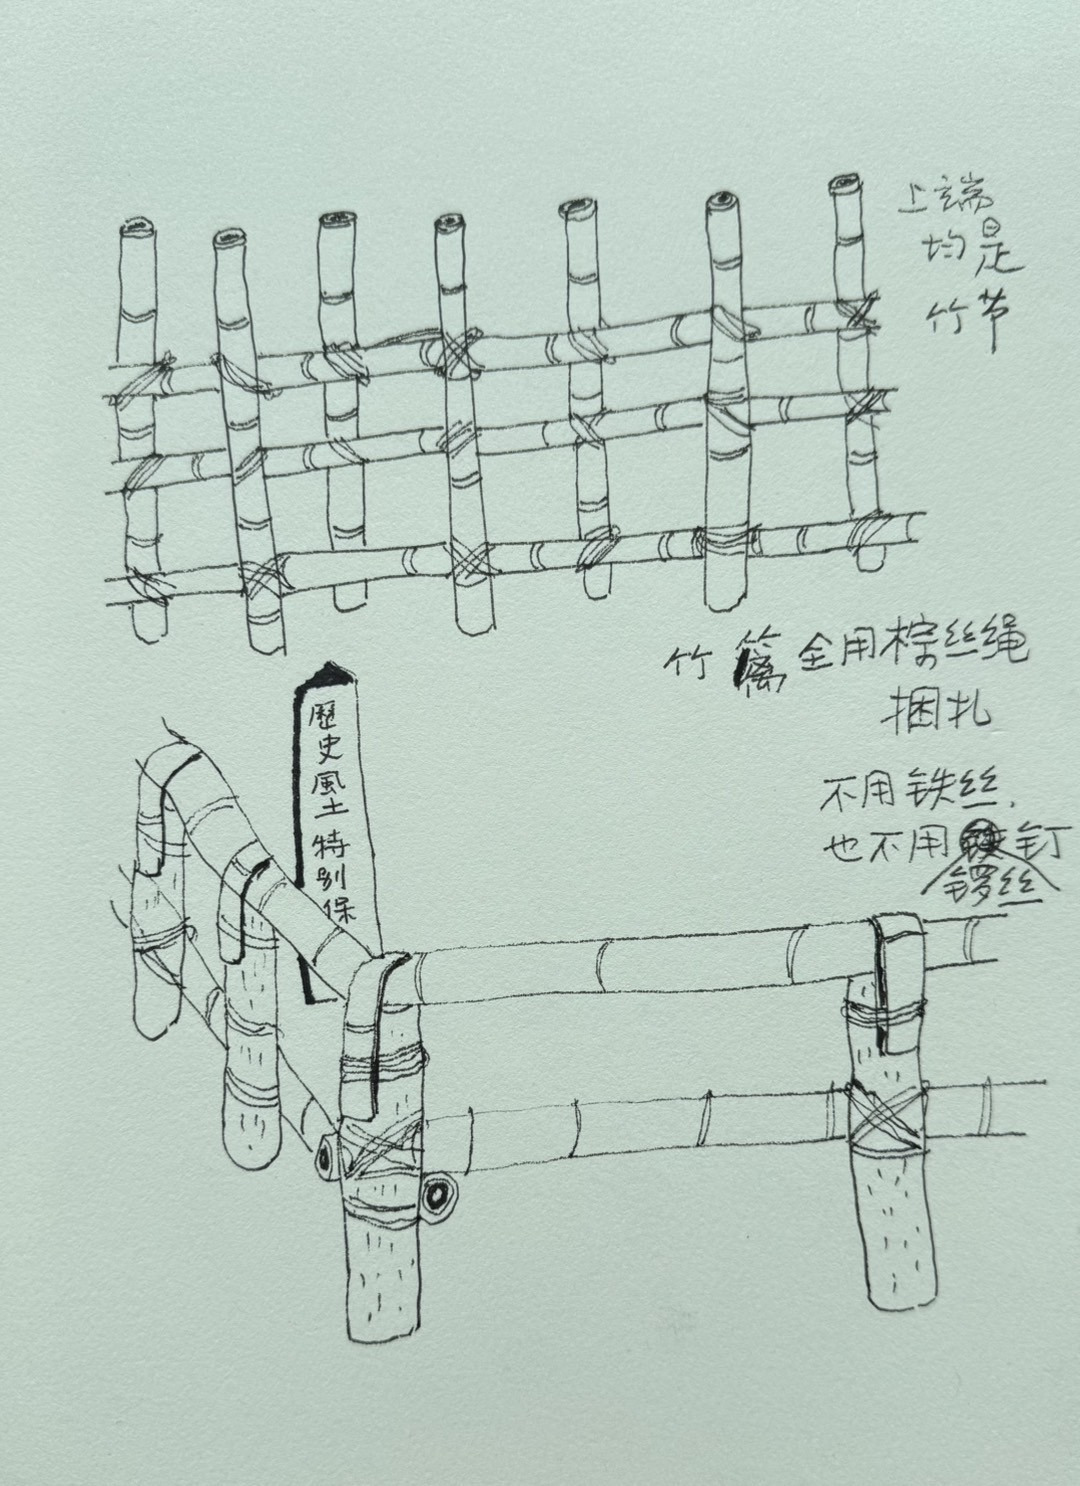 上端
均是
竹节
竹篱全用棕丝绳
捆扎
不用铁丝,
也不用钉
锣丝
歷史風土特別保